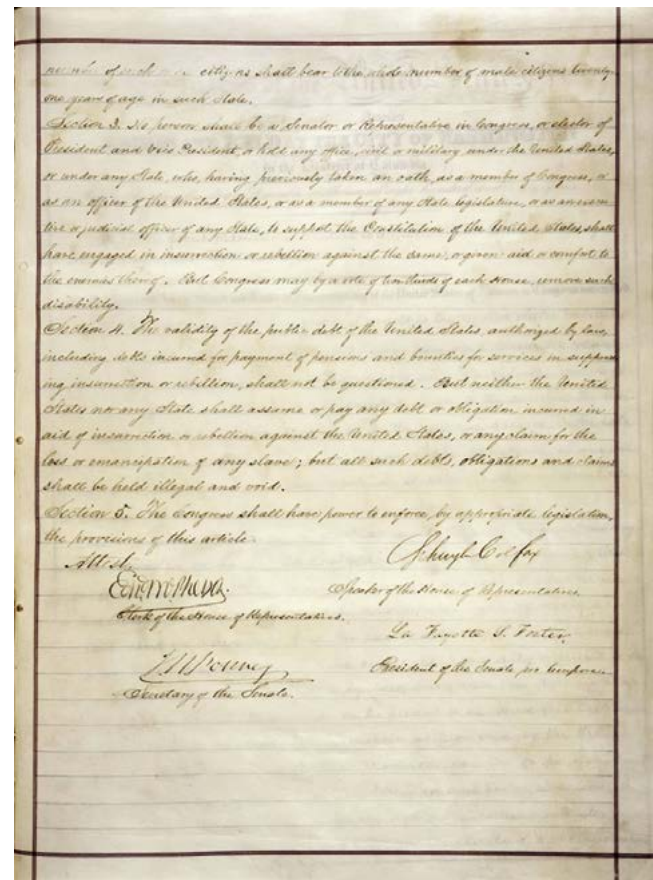 number of such male citizens shall bear to the whole number of male citizens twenty-
one years of age in such State.
Section 3. No person shall be a Senator or Representative in Congress, or elector of
President and Vice President, or hold any office, civil or military, under the United States,
or under any State, who, having previously taken an oath, as a member of Congress, or
as an officer of the United States, or as a member of any State legislature, or as an execu-
tive or judicial officer of any State, to support the Constitution of the United States, shall
have engaged in insurrection or rebellion against the same, or given aid or comfort to
the enemies thereof. But Congress may by a vote of two-thirds of each House, remove such
disability.
Section 4. The validity of the public debt of the United States, authorized by law,
including debts incurred for payment of pensions and bounties for services in suppress-
ing insurrection or rebellion, shall not be questioned. But neither the United
States nor any State shall assume or pay any debt or obligation incurred in
aid of insurrection or rebellion against the United States, or any claim for the
loss or emancipation of any slave; but all such debts, obligations and claims
shall be held illegal and void.
Section 5. The Congress shall have power to enforce, by appropriate legislation,
the provisions of this article.
Attest,
Schuyler Colfax
Edwd McPherson
Speaker of the House of Representatives.
Clerk of the House of Representatives.
La Fayette S. Foster
J W Forney
President of the Senate, pro tempore.
Secretary of the Senate.